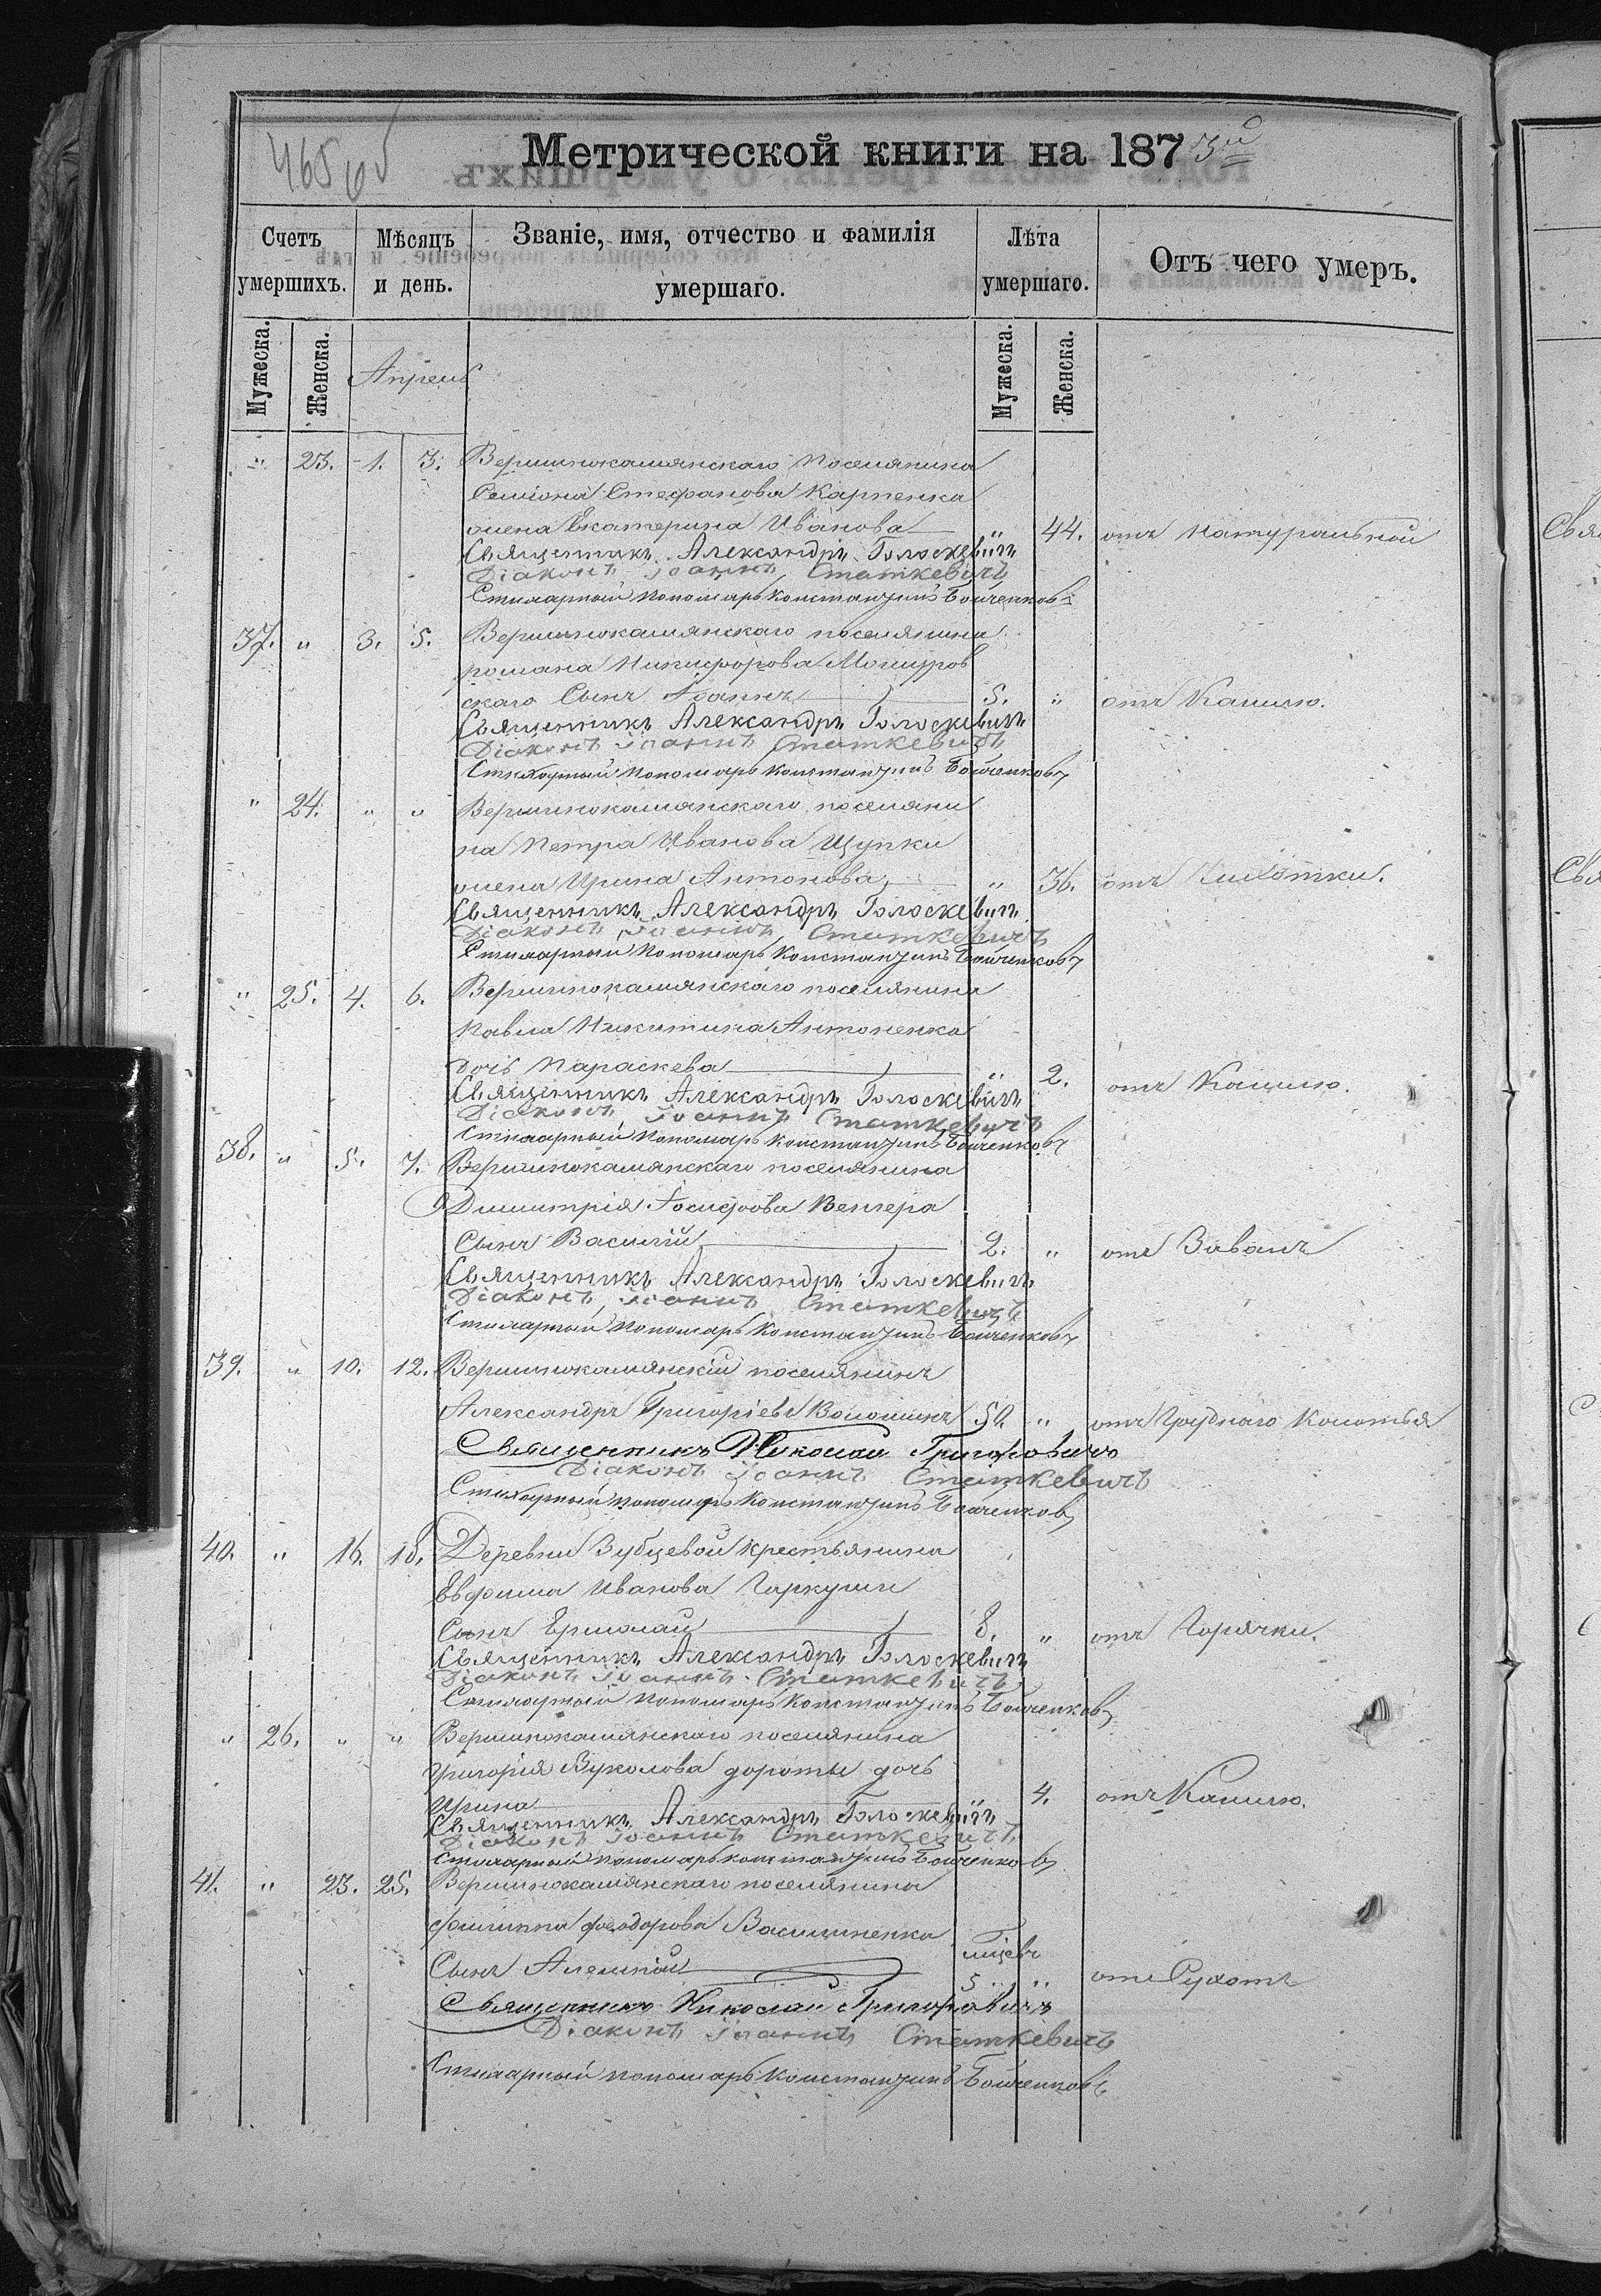 465
65
Метрической книги на 1873й
Счетъ умершихъ.
Мѣсяцъ и день.
Званіе, имя, отчество и фамилія умершаго.
Лѣта умершаго.
Отъ чего умеръ.
Мужеска. Женска. Апрель Мужеска. Женска.
" 23. 1. 3. Вершинокамянскаго поселянина
Семіона Стефанова Карпенка
жена Екатерина Иванова " 44. отъ Натуральной
Священникъ Александръ Голоскевичъ
Діаконъ Іоаннъ Статкевичъ
Стихарный Пономарь Константинъ Бойченковъ
37. " 3. 5. Вершинокамянскаго поселянина
романа Никифорова Мошуров
скаго Сынъ Іоаннъ 5. " отъ Кашлю.
Священникъ Александръ Голоскевичъ
Діаконъ Іоаннъ Статкевичъ
Стихарный Пономарь Константинъ Бойченковъ
" 24. " " Вершинокамянскаго поселяни
на Петра Иванова Щупки
жена Ирина Антонова " 36. отъ Чихотки.
Священникъ Александръ Голоскевичъ
Діаконъ Іоаннъ Статкевичъ
Стихарный Пономарь Константинъ Бойченковъ
" 25. 4. 6. Вершинокамянскаго поселянина
Павла Никитина Антоненка
дочь Параскева " 2. отъ Кашлю.
Священникъ Александръ Голоскевичъ
Діаконъ Іоаннъ Статкевичъ
Стихарный Пономарь Константинъ Бойченковъ
38. " 5. 7. Вершинокамянскаго поселянина
Димитрія Іосифова Венгера
Сынъ Василій 2. " отъ Завалъ
Священникъ Александръ Голоскевичъ
Діаконъ Іоаннъ Статкевичъ
Стихарный Пономарь Константинъ Бойченковъ
39. " 10. 12. Вершинокамянскій поселянинъ
Александръ Григоріевъ Волошинъ 50. " отъ Груднаго Колотья
Священникъ Николай Григоровичъ
Діаконъ Іоаннъ Статкевичъ
Стихарный Пономарь Константинъ Бойченковъ
40. " 16. 18. Деревни Зубцевой крестьянина
Евфима Иванова Гаркуши
Сынъ Ермолай 8. " отъ Горячки.
Священникъ Александръ Голоскевичъ
Діаконъ Іоаннъ Статкевичъ
Стихарный Пономарь Константинъ Бойченковъ
" 26. " " Вершинокамянскаго поселянина
Григорія Вуколова дороты дочь
Ирина " 4. отъ Кашлю.
Священникъ Александръ Голоскевичъ
Діаконъ Іоаннъ Статкевичъ
Стихарный Пономарь Константинъ Бойченковъ
41. " 23. 25. Вершинокамянскаго поселянина
филиппа феодорова Василиненка
мцевъ
Сынъ Алексій 5 " отъ Сухотъ
Священникъ Николай Григоровичъ
Діаконъ Іоаннъ Статкевичъ
Стихарный Пономарь Константинъ Бойченковъ